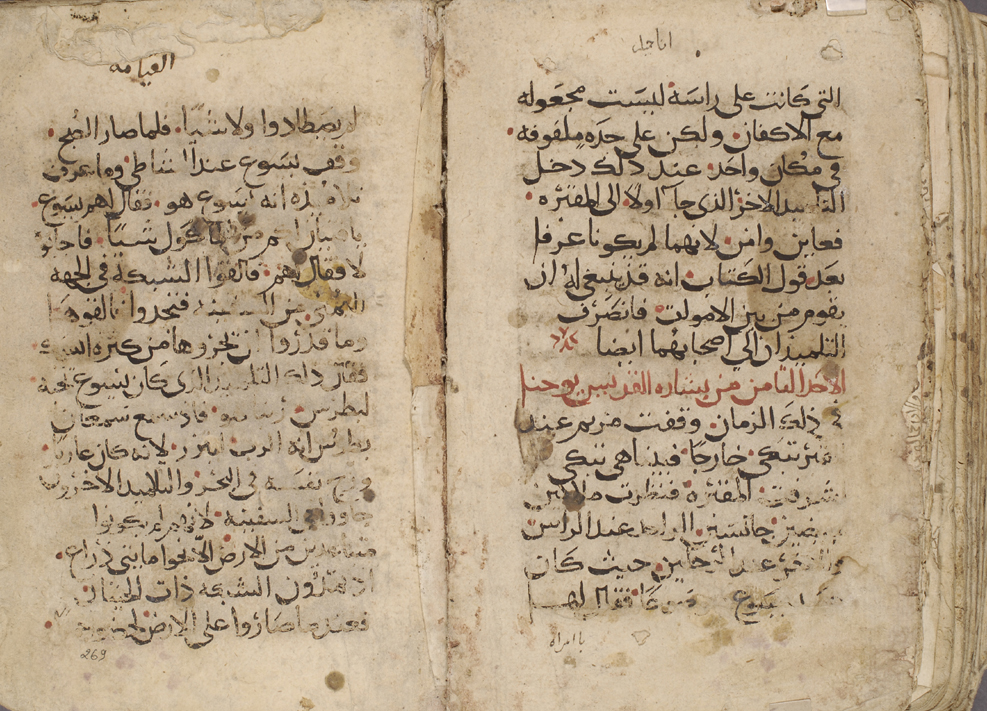 اناجيل
التي كانت على راسه ليست مجعوله
مع الاكفان ولكن على حده ملفوفه
في مكان واحد عند ذلك دخل
التلميد الاخر الذي جا اولا الى المقبره
فعاين وامن لانهما لم يكونا عرفا
بعد قول الكتاب انه قد ينبغي له ان
يقوم من بين الاموات فانصرف
التلميذان الي اصحابهما ايضا
الاحد الثامن من بشاره القديس يوحنا
في ذلك الزمان وقفت مريم عند
تبكي خارجا فبينما هي تبكي
المقبره فنظرت ملاكين
جالسين الواحد عند الراس
والاخر عند الرجلين حيث كان
يسوع فقالا لها
يا امراه
القيامه
لم يصطادوا ولا شيا فلما صار الصبح
وقف يسوع عند الشاطي وما عرف
انه يسوع هو فقال لهم يسوع
شيا فاجابو
لا فقال لهم فالقوا الشبكه في الجهه
فتجدوا فالقوها
وما قدروا ان يجروها من كثره السمك
فقال ذلك التلميذ الذي كان يسوع يحبه
لبطرس فاذ سمع سمعان
بطرس انه الرب اتزر لانه كان عاريا
نفسه في البحر والتلاميد الاخرون
جاوا في السفينه لانهم لم يكونوا
من الارض الا نحوا مايتي ذراع
الشبكه ذات الحيتان
فعند ما صاروا على الارض
269